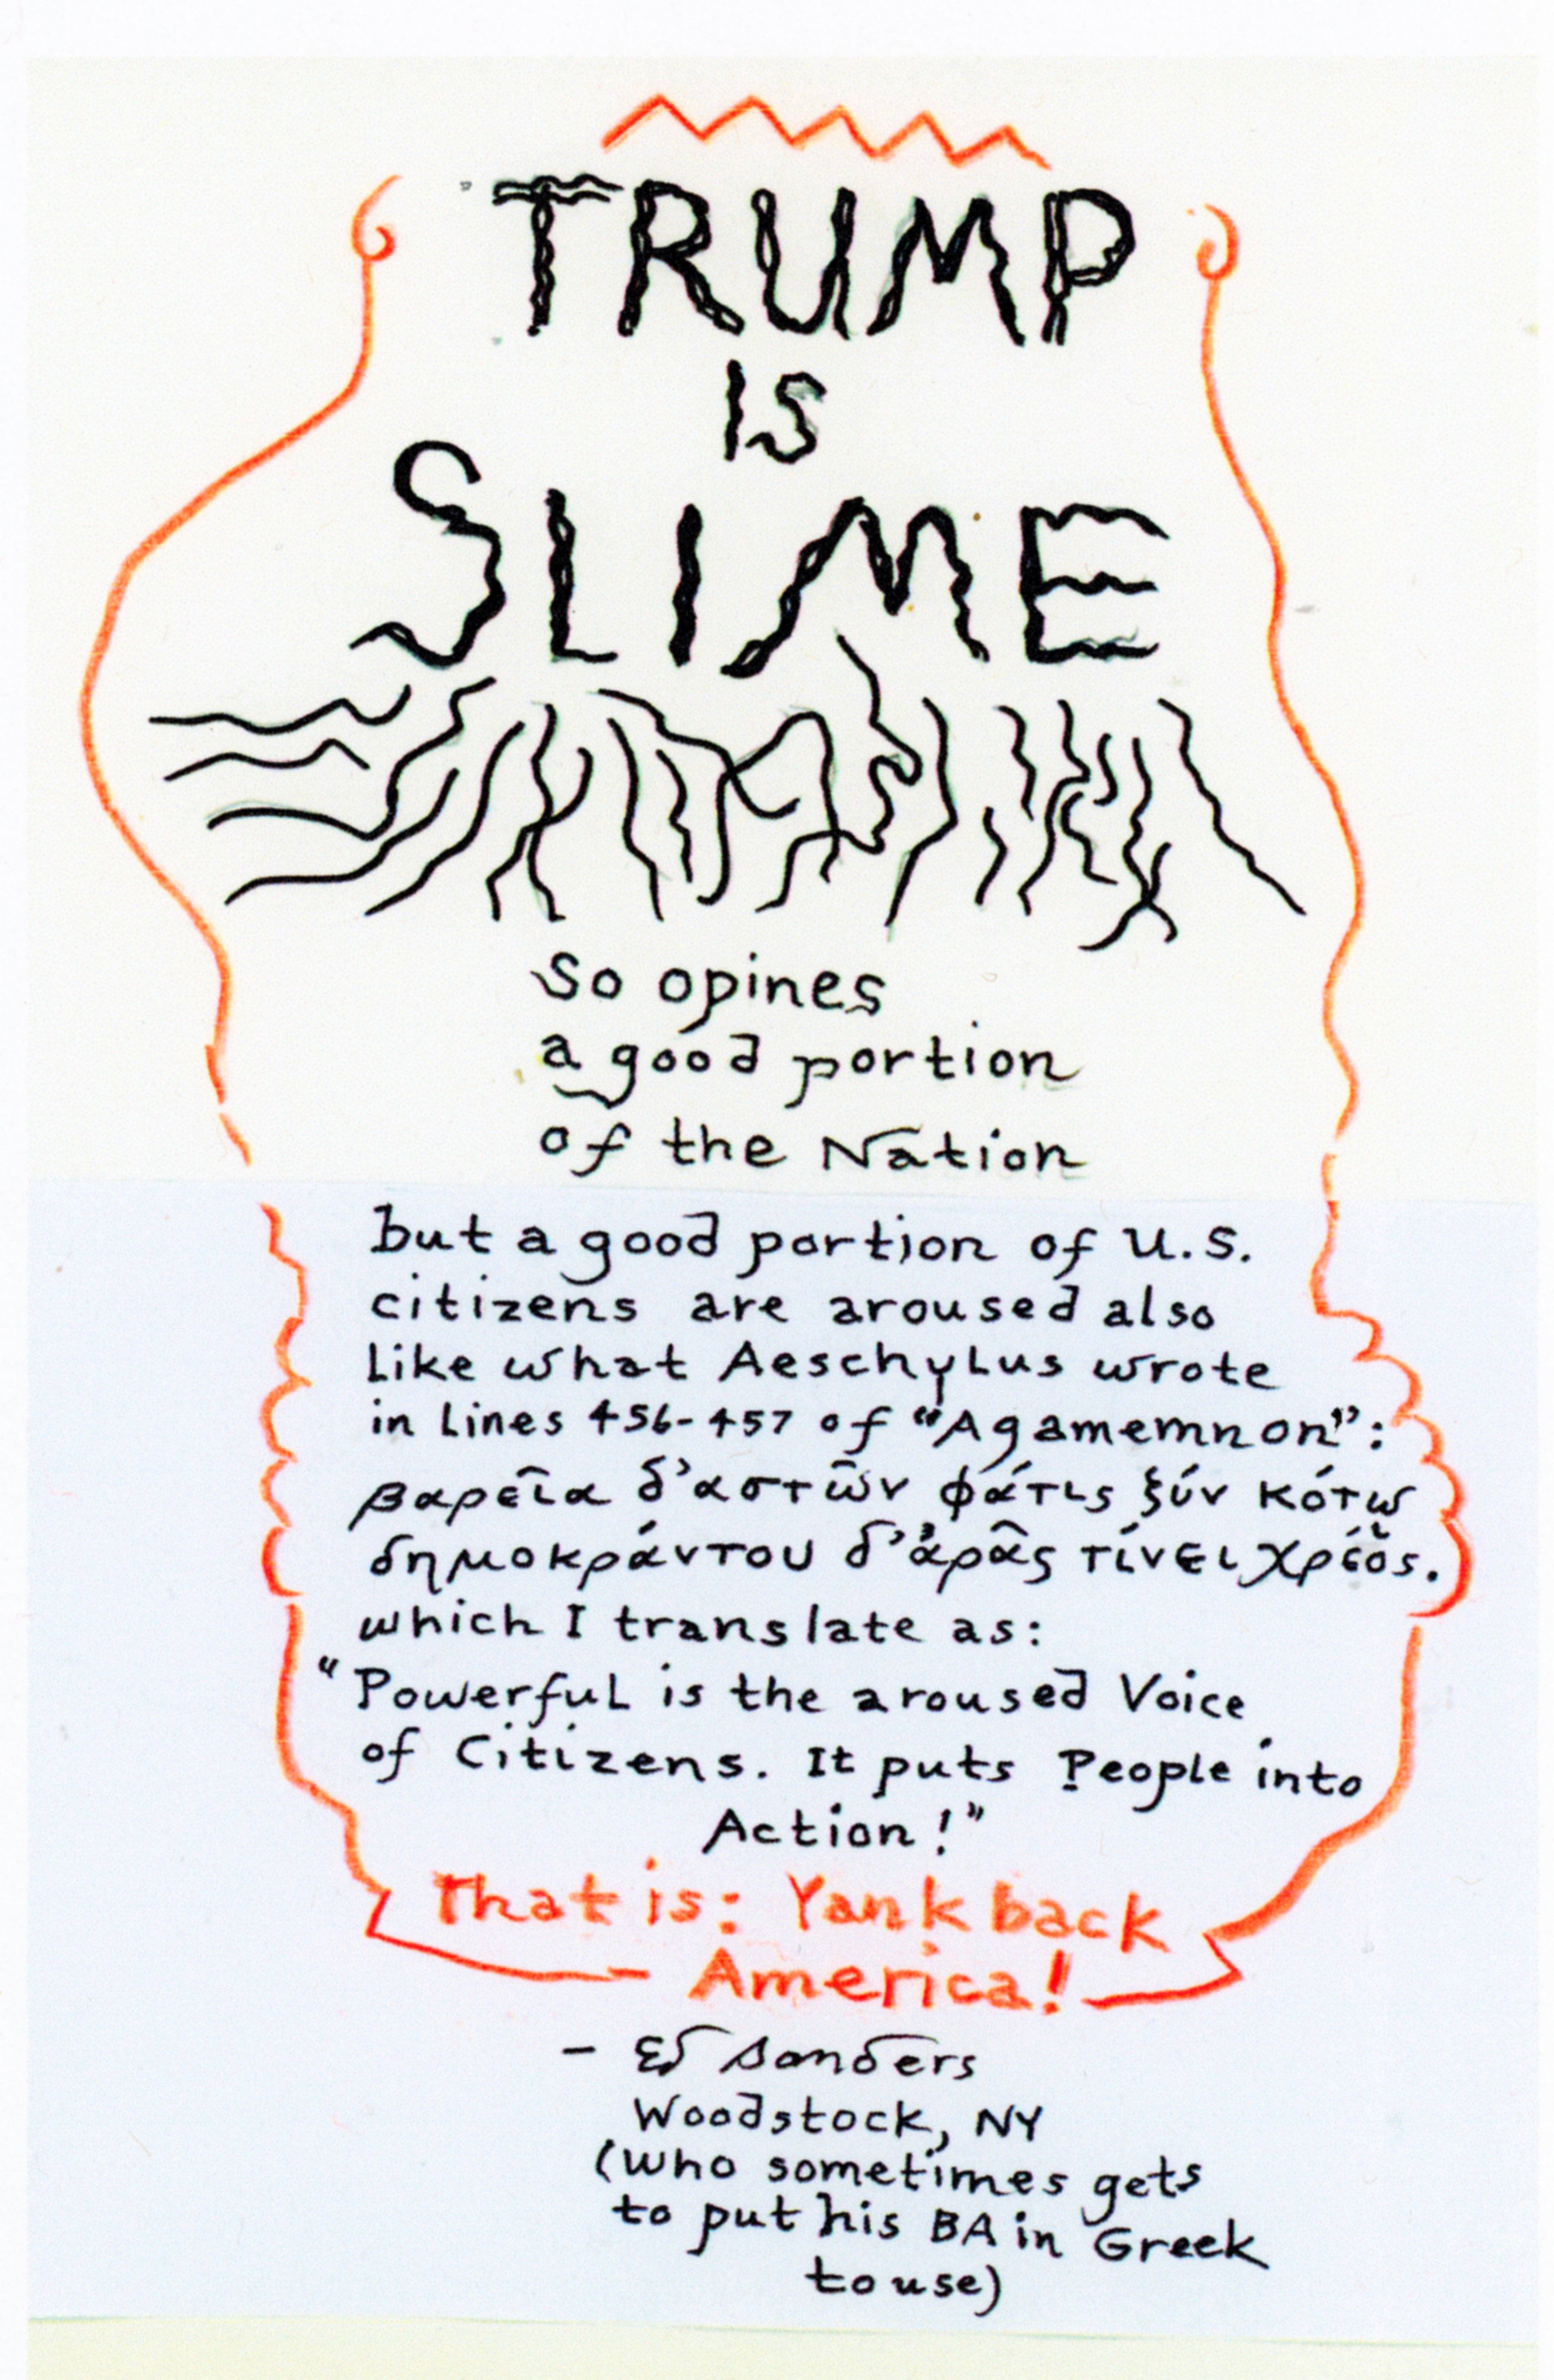 TRUMP
IS
SLIME
So opines
a good portion
of the Nation
but a good portion of U.S.
citizens are aroused also
like what Aeschylus wrote
in lines 456-457 of "Agamemnon":
βαρεῖα δ'αστῶν φάτις ξύν κότω
δημοκράντου δ'ἀρᾶς τίνει χρέος.
which I translate as:
"Powerful is the aroused Voice
of Citizens. It puts People into
Action!"
That is: Yank back
America!
- Ed Sanders
Woodstock, NY
(who sometimes gets
to put his BA in Greek
to use)